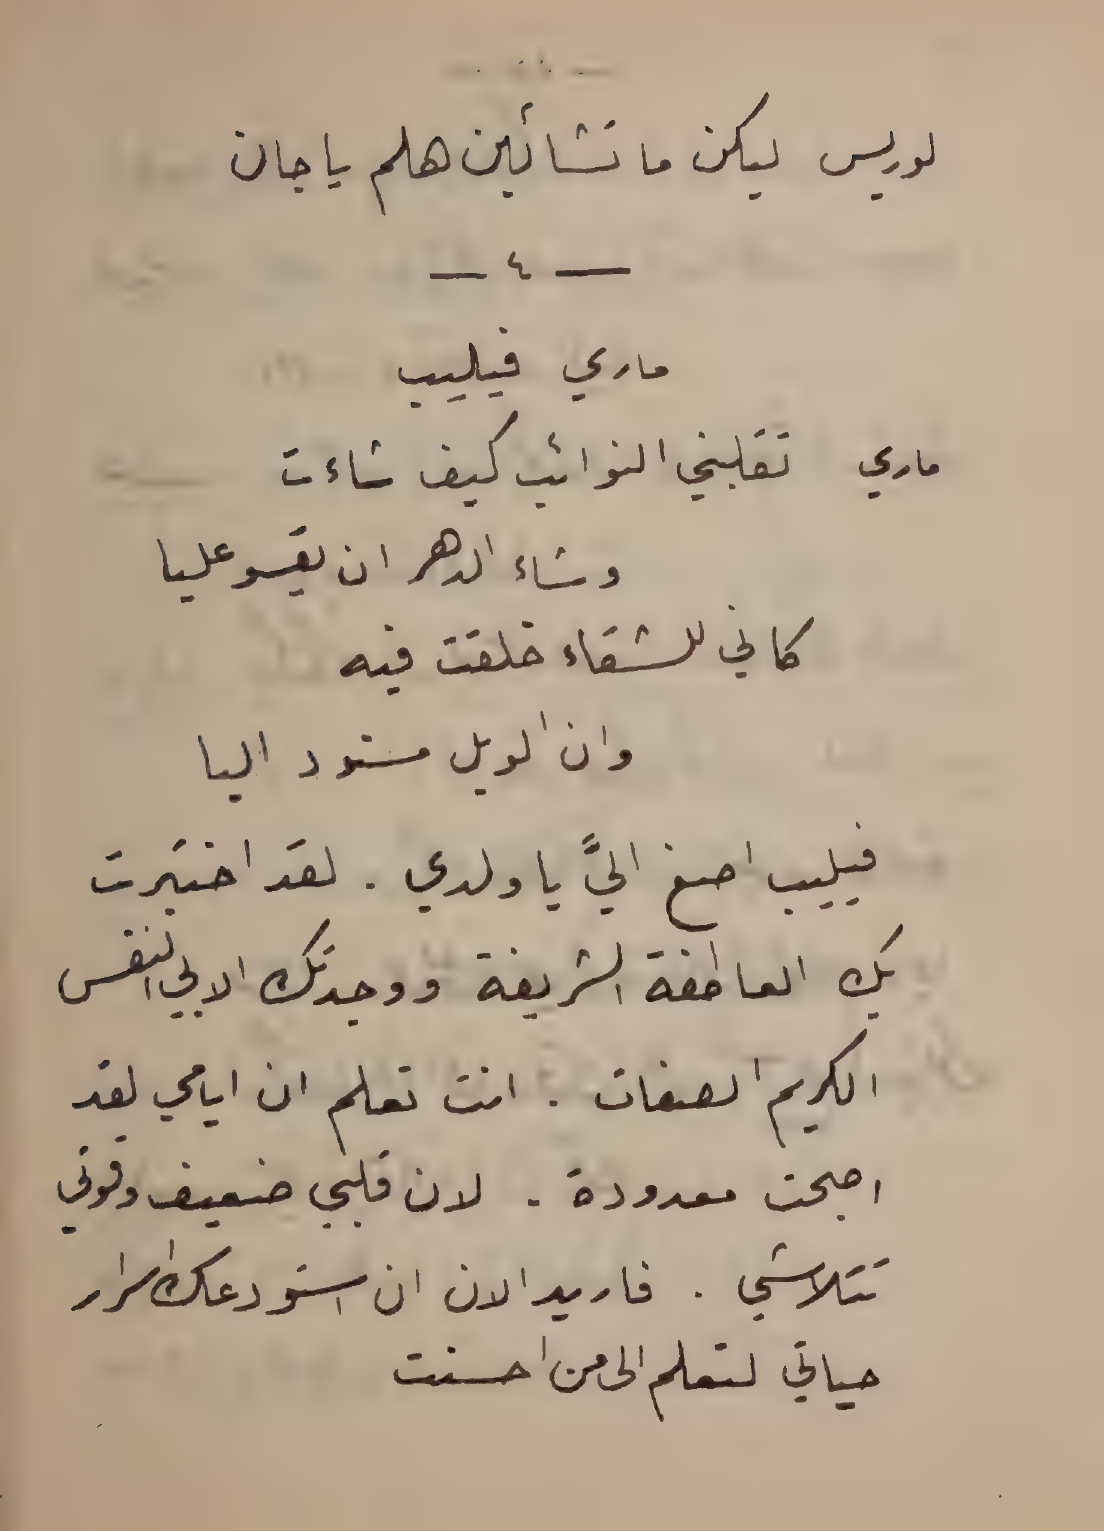 لوريس ليكن ما تشائين هلم يا جان
— ٤ —
ماري فيليب
ماري تقلبني النوائب كيف شاءت
وشاء الدهر ان يقسو عليا
كاني للشقاء خلقت فيه
وان الويل مستود اليا
فيليب اصغ اليَّ يا ولدي . لقد اختبرت
بك العاطفة الشريفة ووجدتك الابي النفس
الكريم الصفات . انت تعلم ان ايامي لقد
اصبحت معدودة . لان قلبي ضعيف وقوتي
تتلاشى . فاريد الان ان استودعك اسرار
حياتي لتعلم الى من احسنت